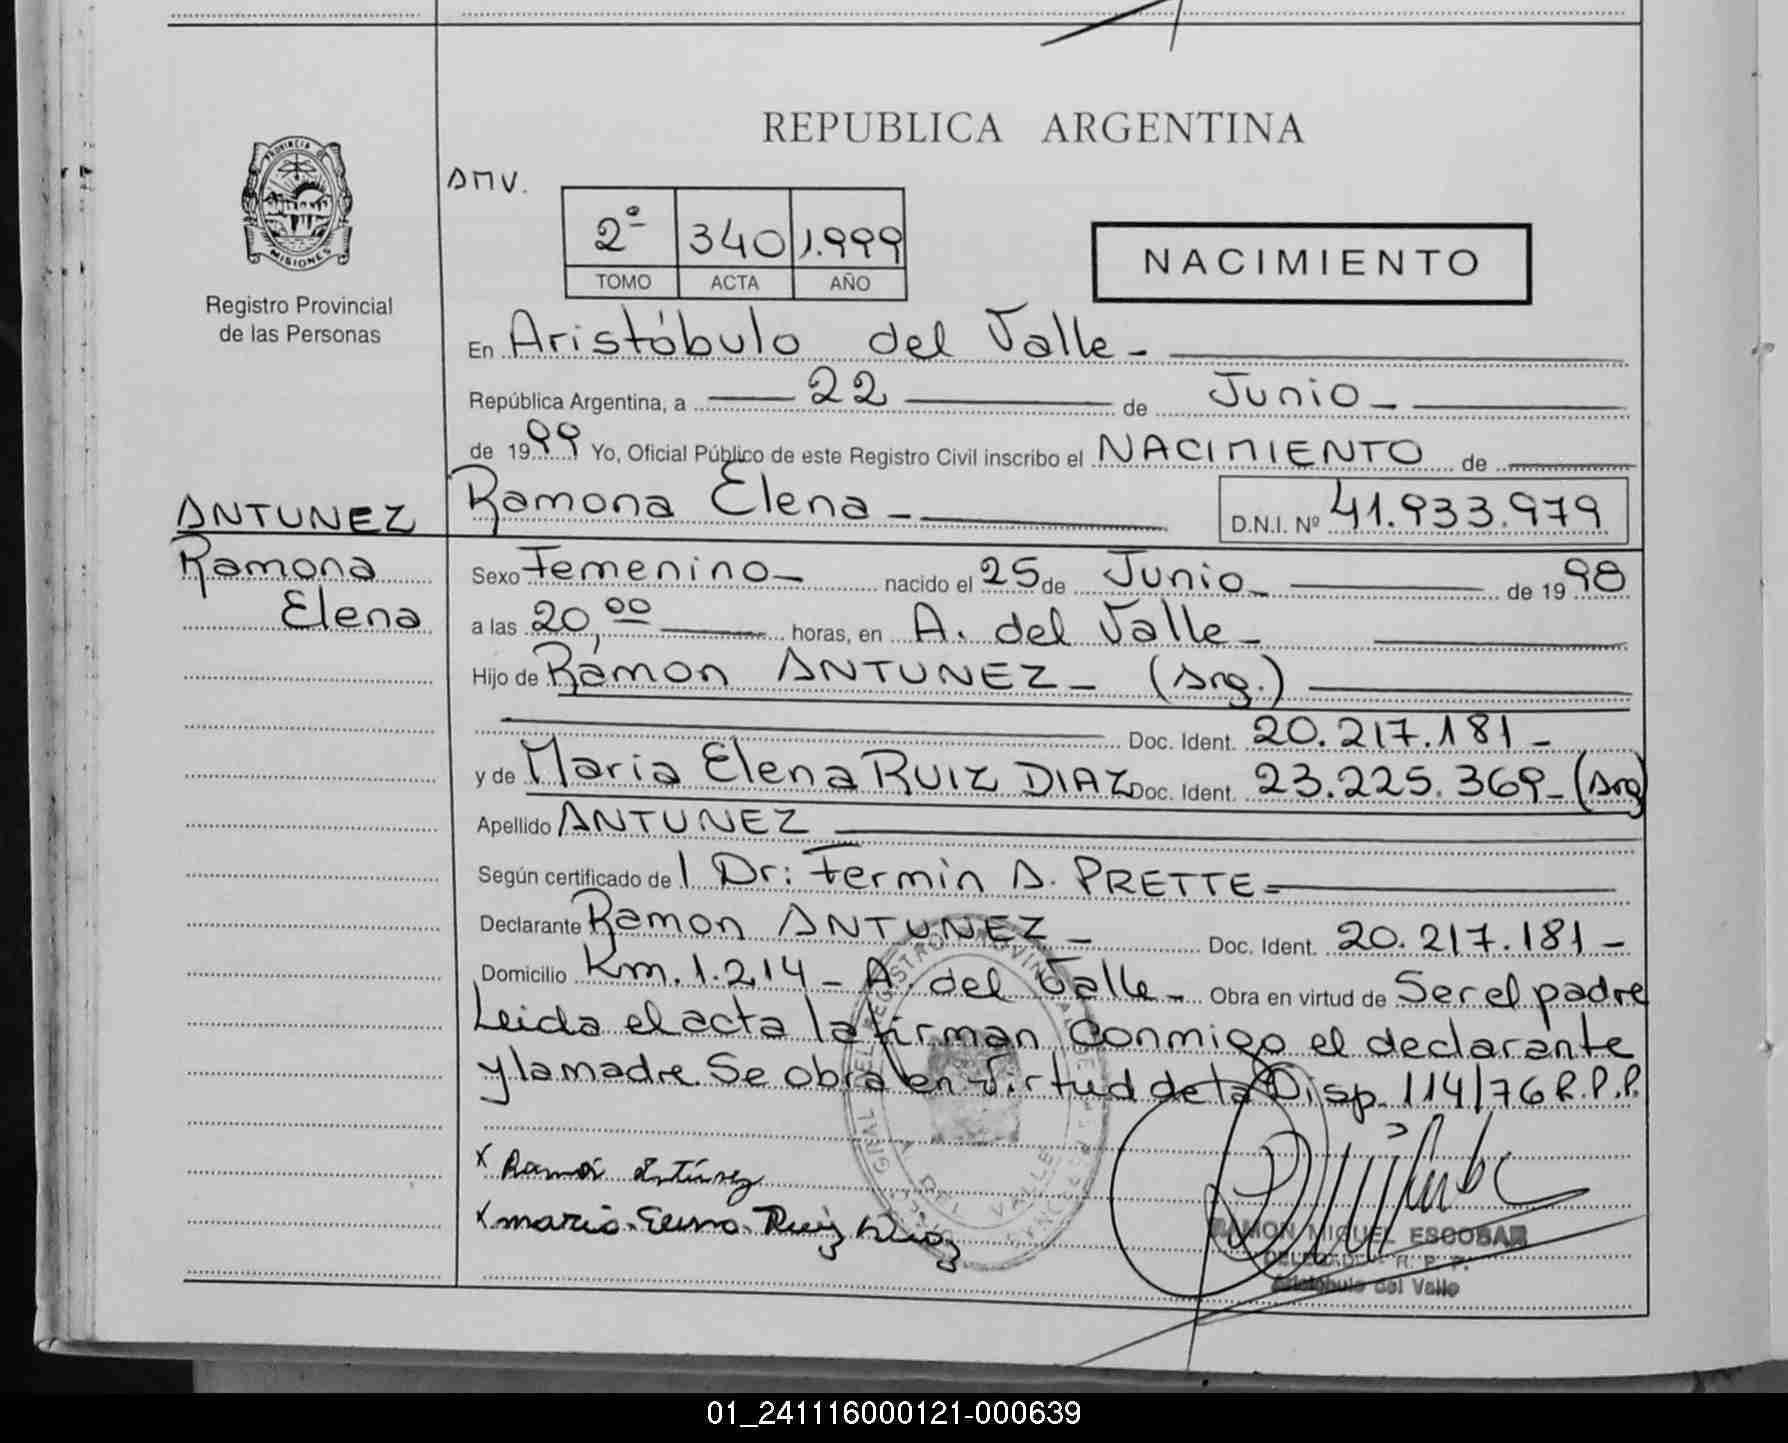 REPUBLICA ARGENTINA
PROVINCIA DE MISIONES
Registro Provincial
de las Personas
AMV.
2º 340 1.999
TOMO ACTA AÑO
NACIMIENTO
En Aristóbulo del Valle -
República Argentina, a 22 de Junio -
de 1999 Yo, Oficial Público de este Registro Civil inscribo el NACIMIENTO de
Ramona Elena - D.N.I. Nº 41.933.979
ANTUNEZ
Ramona
Elena
Sexo Femenino - nacido el 25 de Junio - de 1998
a las 20,00 horas, en A. del Valle -
Hijo de Ramon ANTUNEZ - (Arg.)
Doc. Ident. 20.217.181 -
y de Maria Elena RUIZ DIAZ Doc. Ident. 23.225.369 - (Arg)
Apellido ANTUNEZ
Según certificado de l Dr: Fermin A. PRETTE =
Declarante Ramon ANTUNEZ - Doc. Ident. 20.217.181 -
Domicilio Km. 1.214 - A. del Valle - Obra en virtud de Ser el padre
Leida el acta la firman conmigo el declarante
y la madre. Se obra en virtud de la Disp. 114/76 R.P.P.
x Ramon Antúnez
x maria Elena Ruiz Diaz
RAMON MIGUEL ESCOBAR
DELEGADO R. P. P.
Aristóbulo del Valle
01_241116000121-000639